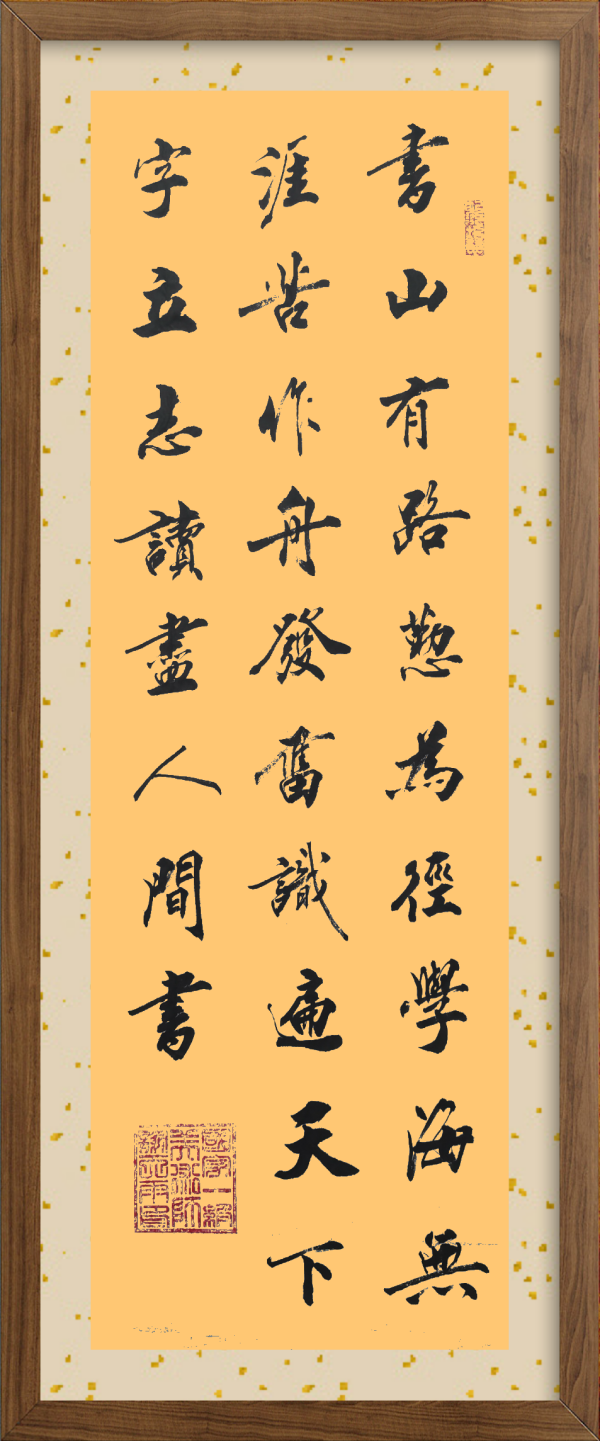 書山有路懃為徑學海無
涯苦作舟發奮識遍天下
字立志讀盡人間書